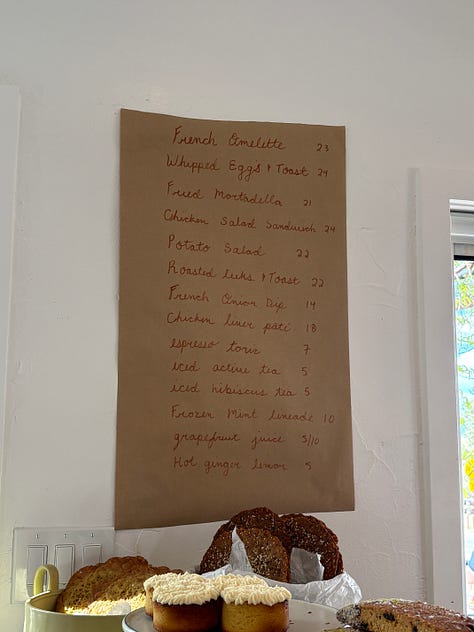 French Omelette 23
Whipped Eggs & Toast 24
Fried Mortadella 21
Chicken Salad Sandwich 24
Potato Salad 22
Roasted leeks & Toast 22
French Onion Dip 14
Chicken liver paté 18
espresso tonic 7
iced active tea 5
iced hibiscus tea 5
Frozen Mint limeade 10
grapefruit juice 5/10
Hot ginger lemon 5